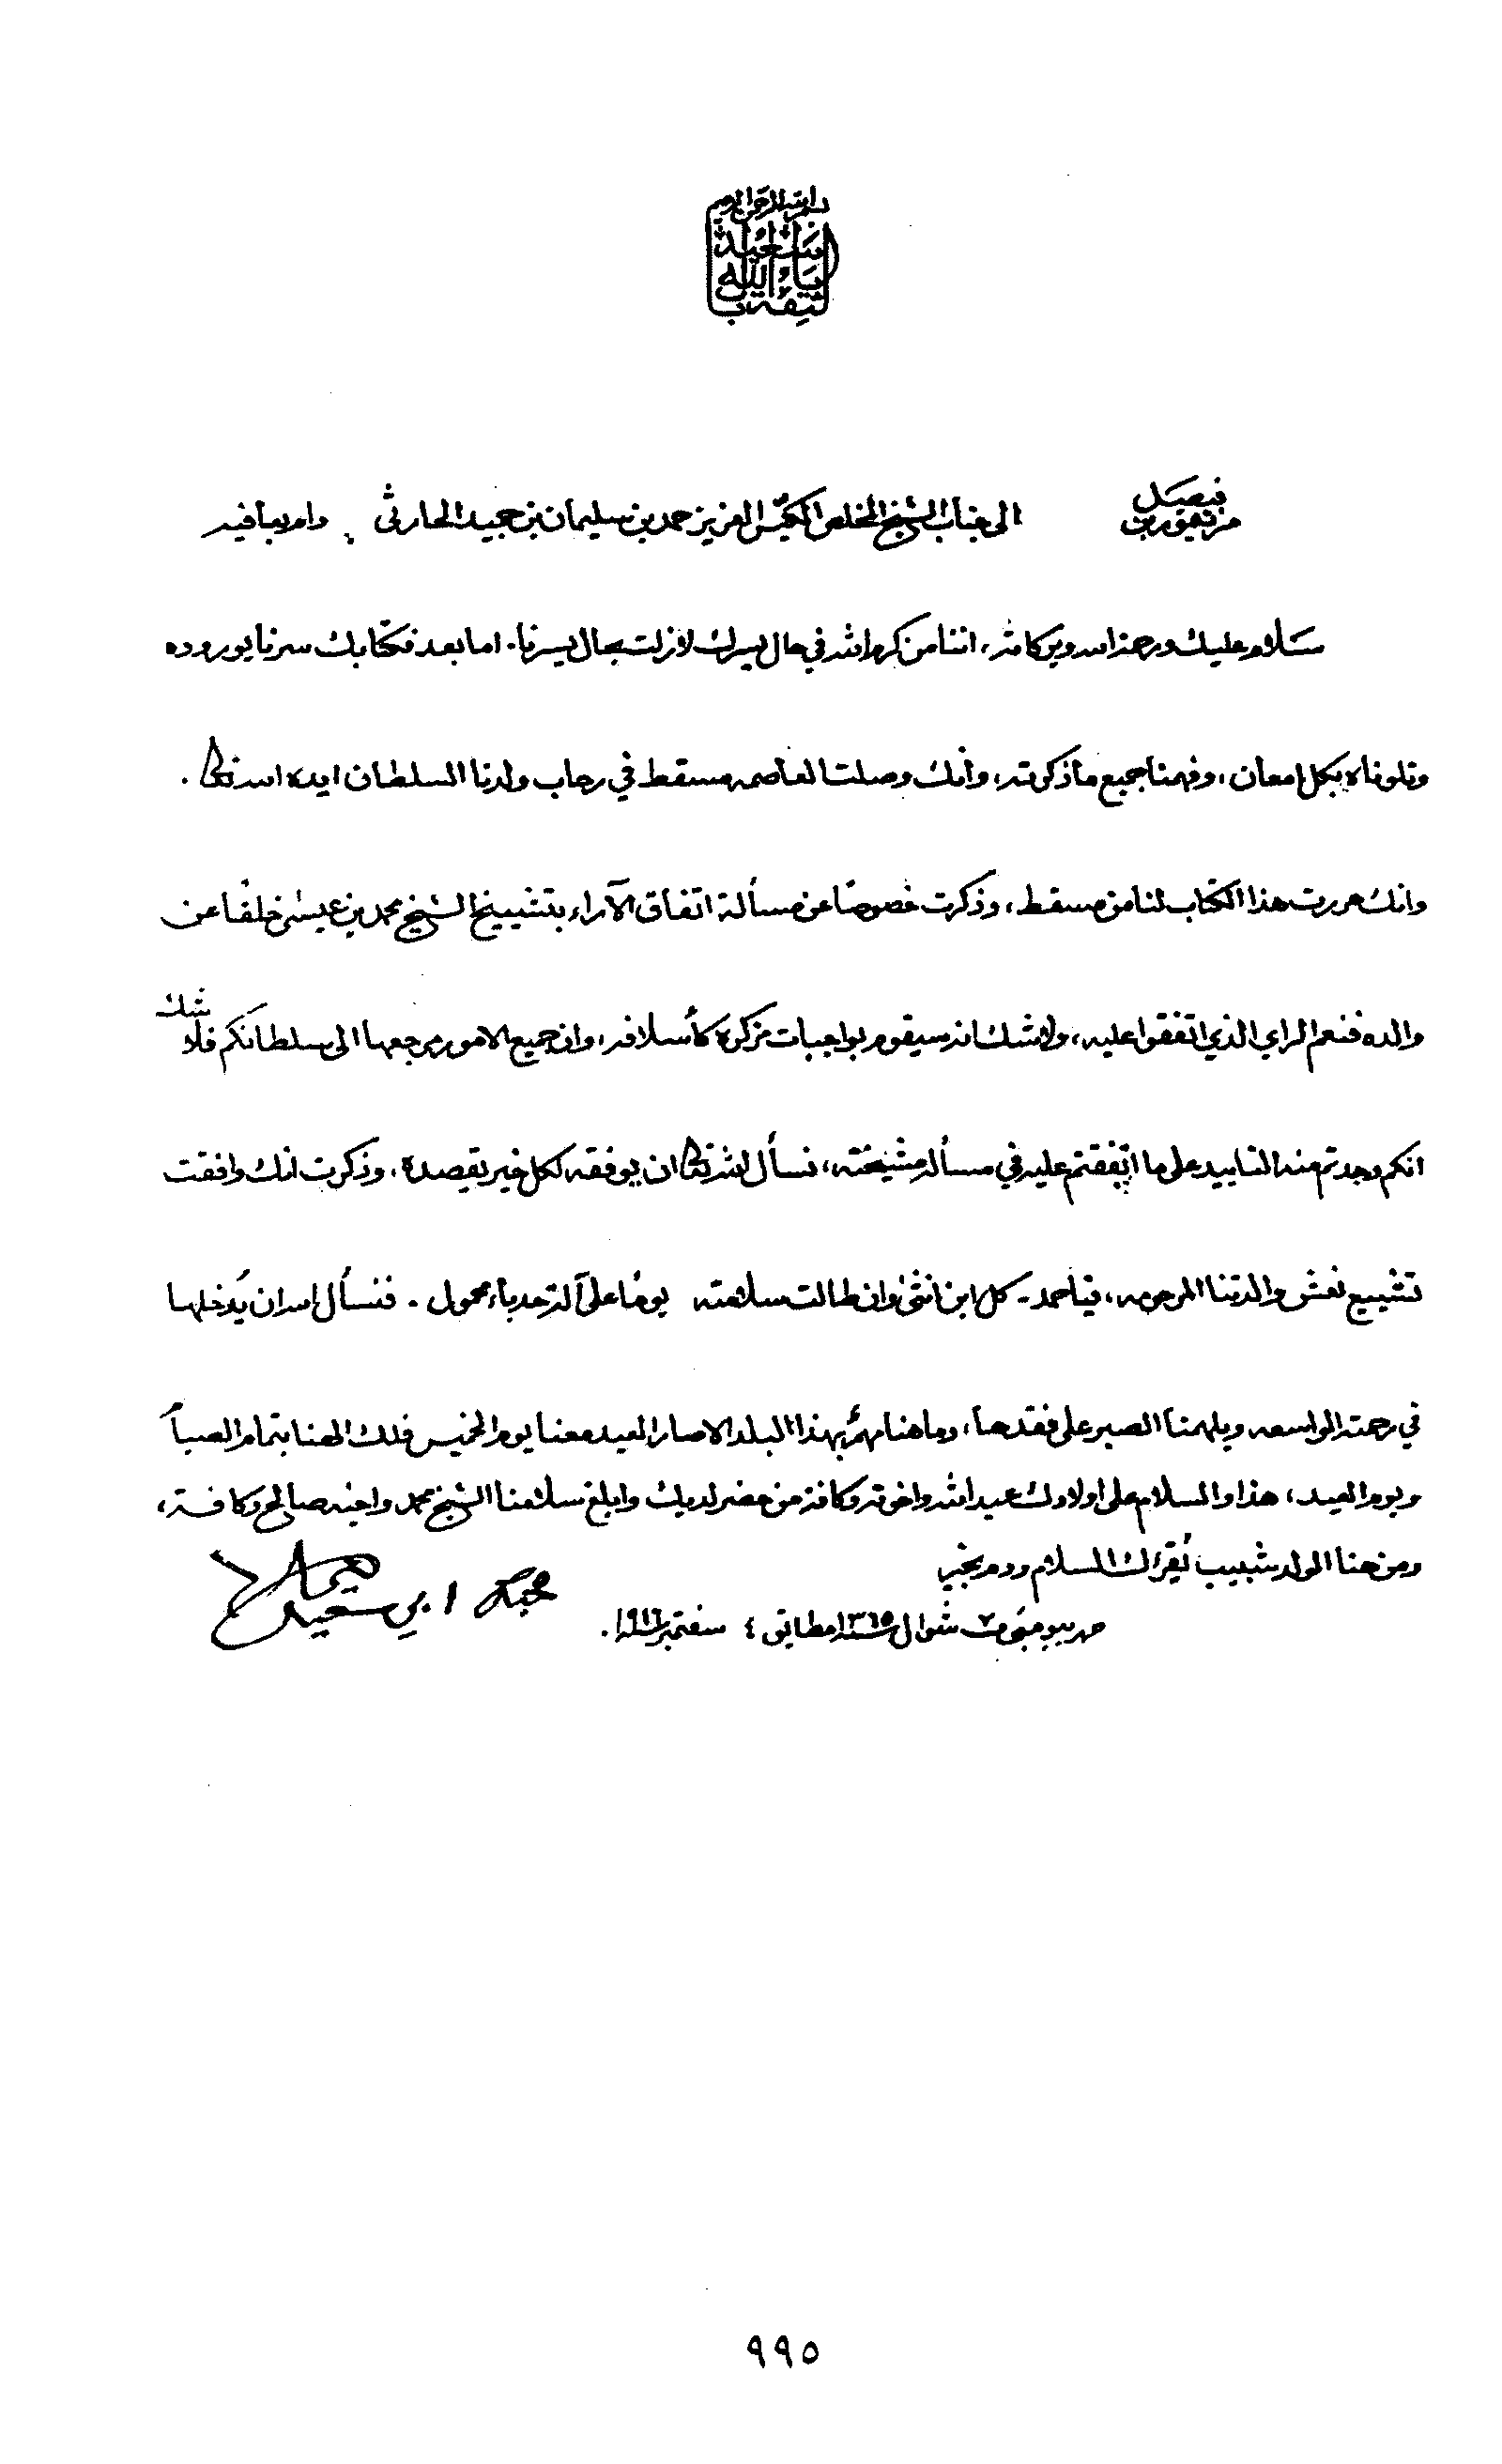 بسم الله الرحمن الرحيم
من تيمور بن فيصل الى جناب الشيخ المخلص المكرم العزيز حمد بن سليمان بن حميد الحارثي دام بعافيه
سلام عليك ورحمة الله وبركاته، اننا من كرم الله في حال يسرك لازلت بحال يسرنا. اما بعد فكتابك سرنا بوروده
وتلوناه بكل إمعان، وفهمنا جميع ما ذكرته، وأنك وصلت العاصمه مسقط في رحاب ولدنا السلطان ايده الله تعالى.
وانك حررت هذا الكتاب لنا من مسقط، وذكرت خصوصًا عن مسألة اتفاق الآراء بتشييخ الشيخ محمد بن عيسى خلفًا عن
والده فنعم الراي الذي اتفقوا عليه، ولا شك انه سيقوم بواجبات مركزه كأسلافه، وان جميع الامور مرجعها الى سلطانكم فلا شك
انكم وجدتم منه التاييد على ما اتفقتم عليه في مسألة مشيخته، نسأل الله تعالى ان يوفقه لكل خير يقصده، وذكرت انك وافقت
تشييع نعش والدتنا المرحومه، فيا حمد - كل ابن انثى وان طالت سلامته يومًا على آلة حدباء محمول. فنسأل الله ان يُدخلها
في رحمته الواسعه ويلهمنا الصبر على فقدها، وما هنا بهذا البلد الا صار العيد معنا يوم الخميس فلك الهنا بتمام الصيام
ويوم العيد، هذا والسلام على اولادك عبدالله واخوته وكافة من حضر لديك وابلغ سلامنا الشيخ محمد واخيه صالح وكافة،
ومن هنا الولد شبيب يُقرئك السلام ودم بخير
حرر بيوم ٧ شوال سنة ١٣٦٥ مطابق ٤ سفتمبر سنة ١٩٤٦.
محبك ابي سعيد
٩٩٥